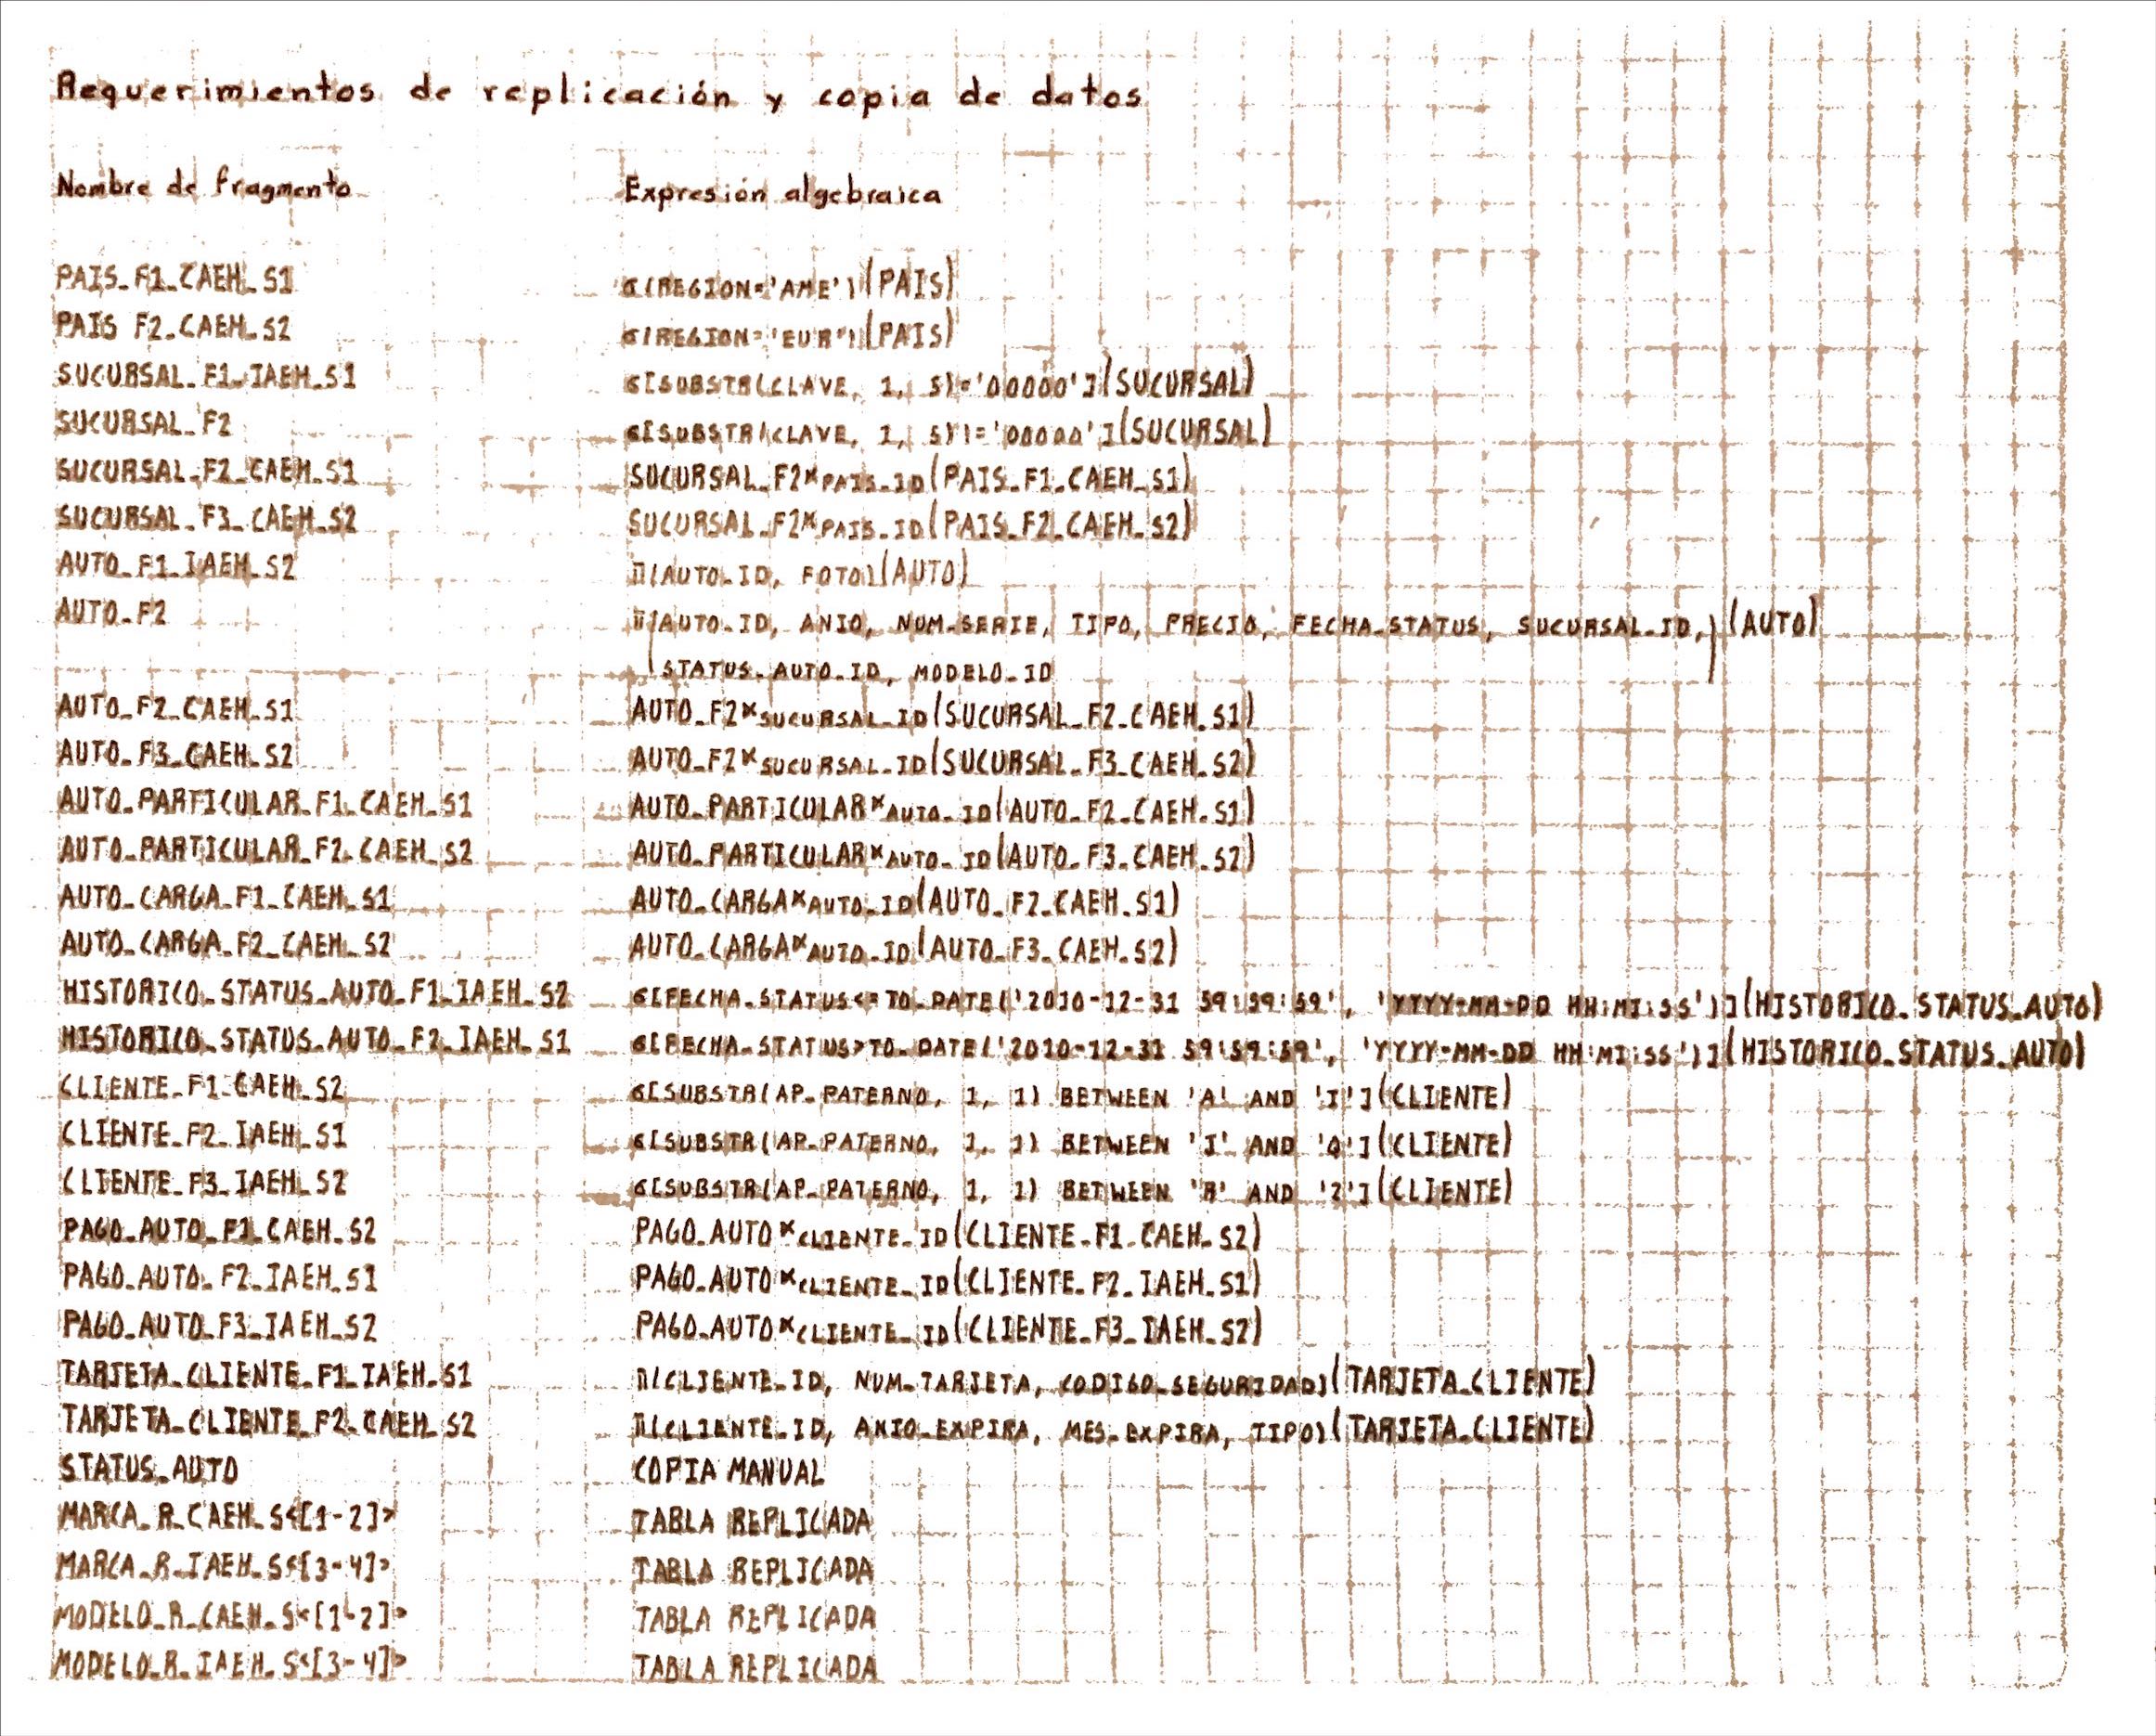 Requerimientos de replicación y copia de datos
Nombre de fragmento Expresión algebraica
PAIS_F1_CAEH_S1 σ(REGION='AME')(PAIS)
PAIS F2_CAEH_S2 σ(REGION='EUR')(PAIS)
SUCURSAL_F1_IAEH_S1 σ[SUBSTR(CLAVE, 1, 5)='00000'](SUCURSAL)
SUCURSAL_F2 σ[SUBSTR(CLAVE, 1, 5)!='00000'](SUCURSAL)
SUCURSAL_F2_CAEH_S1 SUCURSAL_F2⋉PAIS_ID(PAIS_F1_CAEH_S1)
SUCURSAL_F3_CAEH_S2 SUCURSAL_F2⋉PAIS_ID(PAIS_F2_CAEH_S2)
AUTO_F1_IAEH_S2 π(AUTO_ID, FOTO)(AUTO)
AUTO_F2 π(AUTO_ID, ANIO, NUM_SERIE, TIPO, PRECIO, FECHA_STATUS, SUCURSAL_ID,)(AUTO)
STATUS_AUTO_ID, MODELO_ID
AUTO_F2_CAEH_S1 AUTO_F2⋉SUCURSAL_ID(SUCURSAL_F2_CAEH_S1)
AUTO_F3_CAEH_S2 AUTO_F2⋉SUCURSAL_ID(SUCURSAL_F3_CAEH_S2)
AUTO_PARTICULAR_F1_CAEH_S1 AUTO_PARTICULAR⋉AUTO_ID(AUTO_F2_CAEH_S1)
AUTO_PARTICULAR_F2_CAEH_S2 AUTO_PARTICULAR⋉AUTO_ID(AUTO_F3_CAEH_S2)
AUTO_CARGA_F1_CAEH_S1 AUTO_CARGA⋉AUTO_ID(AUTO_F2_CAEH_S1)
AUTO_CARGA_F2_CAEH_S2 AUTO_CARGA⋉AUTO_ID(AUTO_F3_CAEH_S2)
HISTORICO_STATUS_AUTO_F1_IAEH_S2 σ[FECHA_STATUS<=TO_DATE('2010-12-31 59:59:59', 'YYYY-MM-DD HH:MI:SS')](HISTORICO_STATUS_AUTO)
HISTORICO_STATUS_AUTO_F2_IAEH_S1 σ[FECHA_STATUS>TO_DATE('2010-12-31 59:59:59', 'YYYY-MM-DD HH:MI:SS')](HISTORICO_STATUS_AUTO)
CLIENTE_F1_CAEH_S2 σ[SUBSTR(AP_PATERNO, 1, 1) BETWEEN 'A' AND 'I'](CLIENTE)
CLIENTE_F2_IAEH_S1 σ[SUBSTR(AP_PATERNO, 1, 1) BETWEEN 'J' AND 'Q'](CLIENTE)
CLIENTE_F3_IAEH_S2 σ[SUBSTR(AP_PATERNO, 1, 1) BETWEEN 'R' AND 'Z'](CLIENTE)
PAGO_AUTO_F1_CAEH_S2 PAGO_AUTO⋉CLIENTE_ID(CLIENTE_F1_CAEH_S2)
PAGO_AUTO_F2_IAEH_S1 PAGO_AUTO⋉CLIENTE_ID(CLIENTE_F2_IAEH_S1)
PAGO_AUTO_F3_IAEH_S2 PAGO_AUTO⋉CLIENTE_ID(CLIENTE_F3_IAEH_S2)
TARJETA_CLIENTE_F1_IAEH_S1 π(CLIENTE_ID, NUM_TARJETA, CODIGO_SEGURIDAD)(TARJETA_CLIENTE)
TARJETA_CLIENTE_F2_CAEH_S2 π(CLIENTE_ID, ANIO_EXPIRA, MES_EXPIRA, TIPO)(TARJETA_CLIENTE)
STATUS_AUTO COPIA MANUAL
MARCA_R_CAEH_S<[1-2]> TABLA REPLICADA
MARCA_R_IAEH_S<[3-4]> TABLA REPLICADA
MODELO_R_CAEH_S<[1-2]> TABLA REPLICADA
MODELO_R_IAEH_S<[3-4]> TABLA REPLICADA